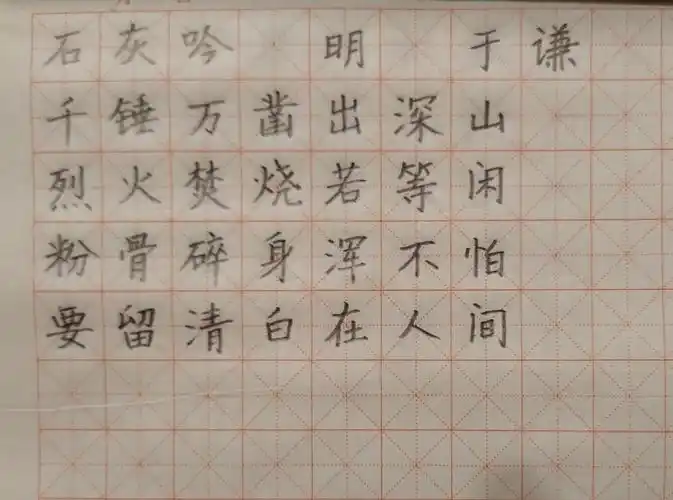 石灰吟 明 于谦
千锤万凿出深山
烈火焚烧若等闲
粉骨碎身浑不怕
要留清白在人间